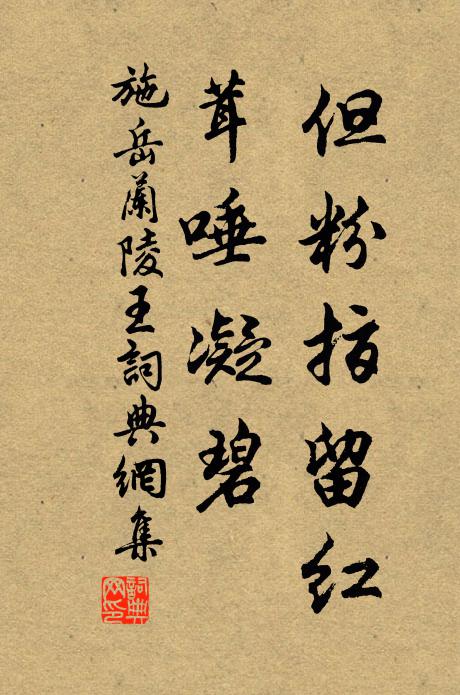 但粉指留红
茸唾凝碧
施岳蘭陵王詞典網集
詞典网印